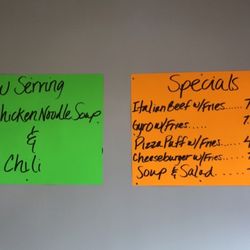 Serving
Chicken Noodle Soup
&
Chili
Specials
Italian Beef w/Fries....
Gyro w/Fries.....
Pizza Puff w/Fries....
Cheeseburger w/Fries
Soup & Salad....